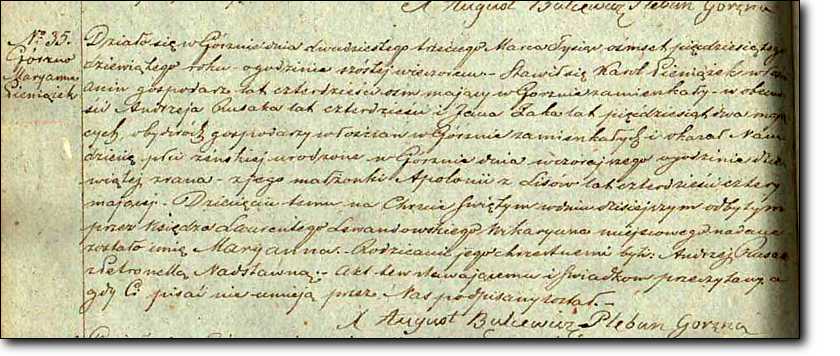 X August Bulcewicz Pleban Gorzna
Nº 35.
Górzno
Maryanna
Pieniążek
Działo się w Górznie dnia dwudziestego trzeciego Marca Tysiąc osmset pięćdziesiątego
dziewiątego roku o godzinie szóstej wieczorem.- Stawił się Karol Pieniążek włoś-
cianin gospodarz lat czterdzieści ośm mający w Górznie zamieszkały - w obecno-
ści Andrzeja Rusaka lat czterdzieści i Jana Żaka lat pięćdziesiąt dwa mają-
cych, obydwóch gospodarzy włościan w Górznie zamieszkałych i okazał Nam
dziecię płci żeńskiej urodzone w Górznie dnia wczorajszego o godzinie dzie-
wiątej zrana - z jego małżonki Apolonii z Lisów lat czterdzieści cztery
mającej.- Dziecięciu temu na Chrzcie Świętym w dniu dzisiejszym odbytym
przez Księdza Laurentego Lewandowskiego Wikaryusza miejscowego nadane
zostało imię Maryanna.- Rodzicami jego chrzestnemi byli: Andrzej Rusak
z Petronellą Nadstawną.- Akt ten stawającemu i świadkom przeczytany, a
gdy Ci pisać nie umieją przez Nas podpisany został.-
X August Bulcewicz Pleban Gorzna